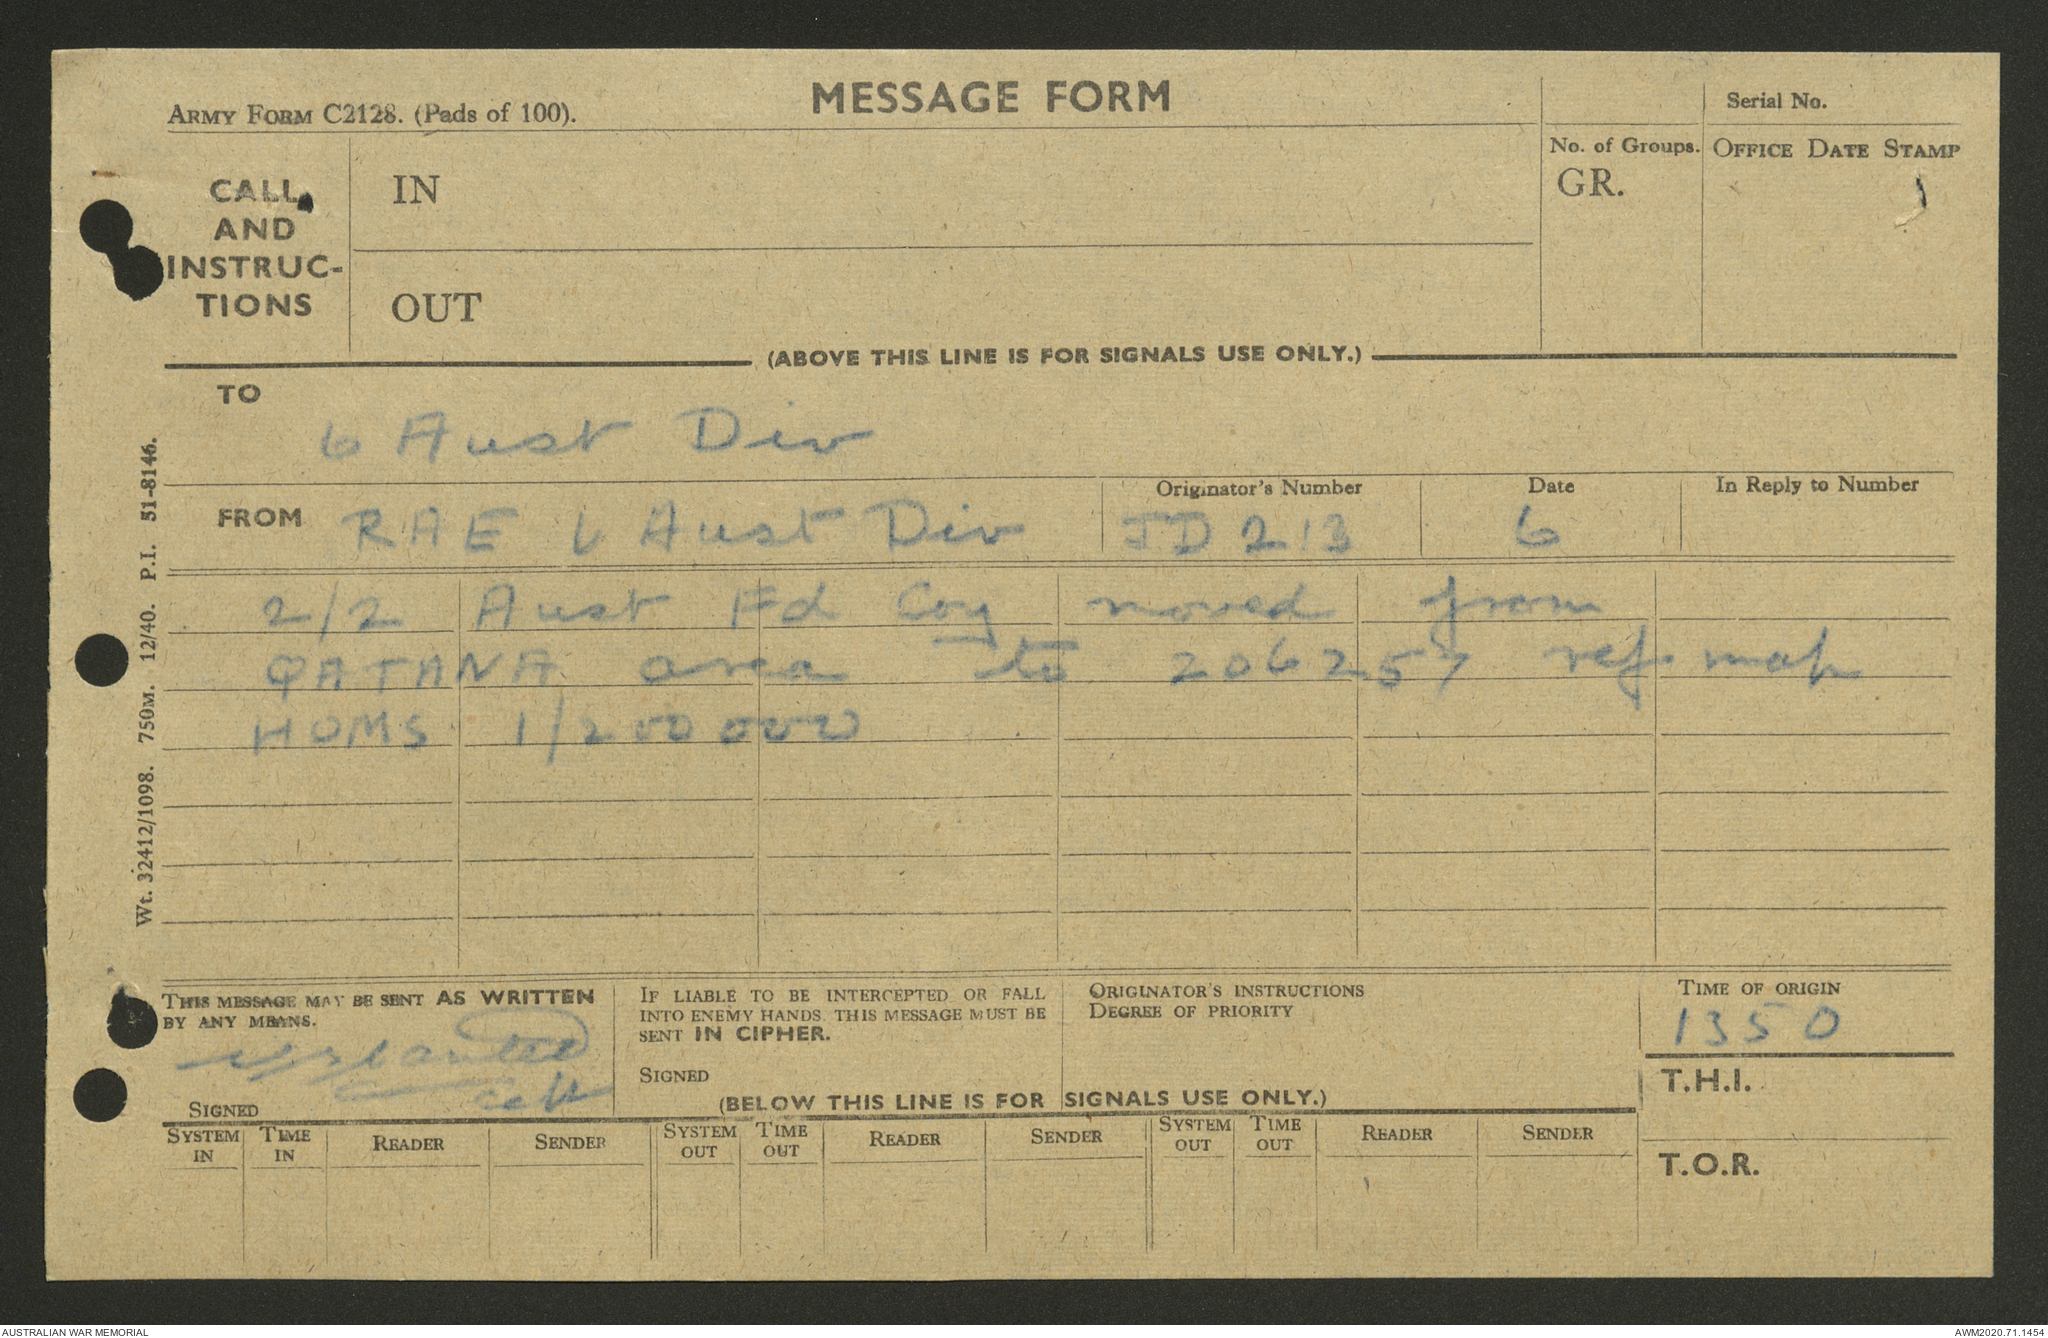 ARMY FORM C2128. (Pads of 100).
MESSAGE FORM
Serial No.
CALL
AND
INSTRUC-
TIONS
IN
OUT
No. of Groups.
GR.
OFFICE DATE STAMP
(ABOVE THIS LINE IS FOR SIGNALS USE ONLY.)
TO
6 Aust Div
FROM
RAE 6 Aust Div
Originator's Number
JD 213
Date
6
In Reply to Number
2/2 Aust Fd Coy moved from
QATANA area to 206257 ref map
HOMS 1/200000
Wt. 32412/1098. 750M. 12/40. P.I. 51-8146.
THIS MESSAGE MAY BE SENT AS WRITTEN
BY ANY MEANS.
Capt
SIGNED
IF LIABLE TO BE INTERCEPTED OR FALL
INTO ENEMY HANDS. THIS MESSAGE MUST BE
SENT IN CIPHER.
SIGNED
ORIGINATOR'S INSTRUCTIONS
DEGREE OF PRIORITY
TIME OF ORIGIN
1350
T.H.I.
T.O.R.
(BELOW THIS LINE IS FOR SIGNALS USE ONLY.)
SYSTEM IN TIME IN READER SENDER SYSTEM OUT TIME OUT READER SENDER SYSTEM OUT TIME OUT READER SENDER
AUSTRALIAN WAR MEMORIAL
AWM2020.71.1454